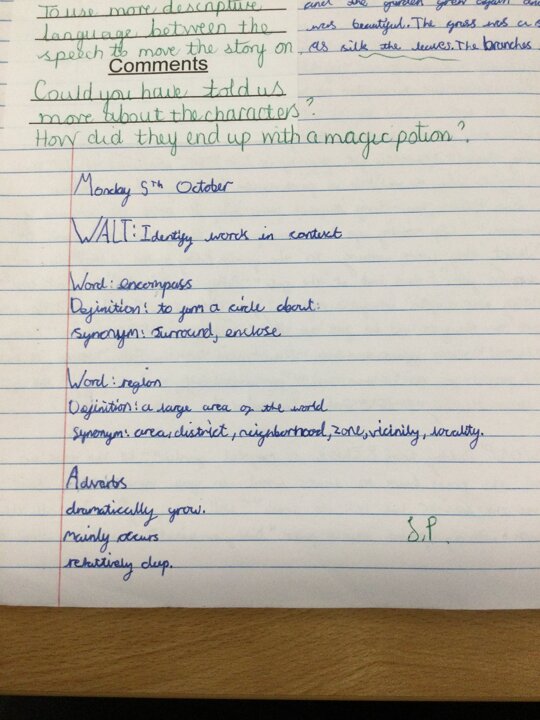 To use more descriptive
language between the
speech to move the story on
Comments
Could you have told us
more about the characters?
How did they end up with a magic potion?
and the garden grew again and
was beautiful. The grass was a s
as silk the leaves. The branches
Monday 5th October
WALT: Identify words in context
Word: encompass
Definition: to form a circle about.
Synonym: surround, enclose
Word: region
Definition: a large area of the world
Synonym: area, district, neighborhood, zone, vicinity, locality.
Adverbs
dramatically grow.
mainly occurs
relatively deep.
S.P.